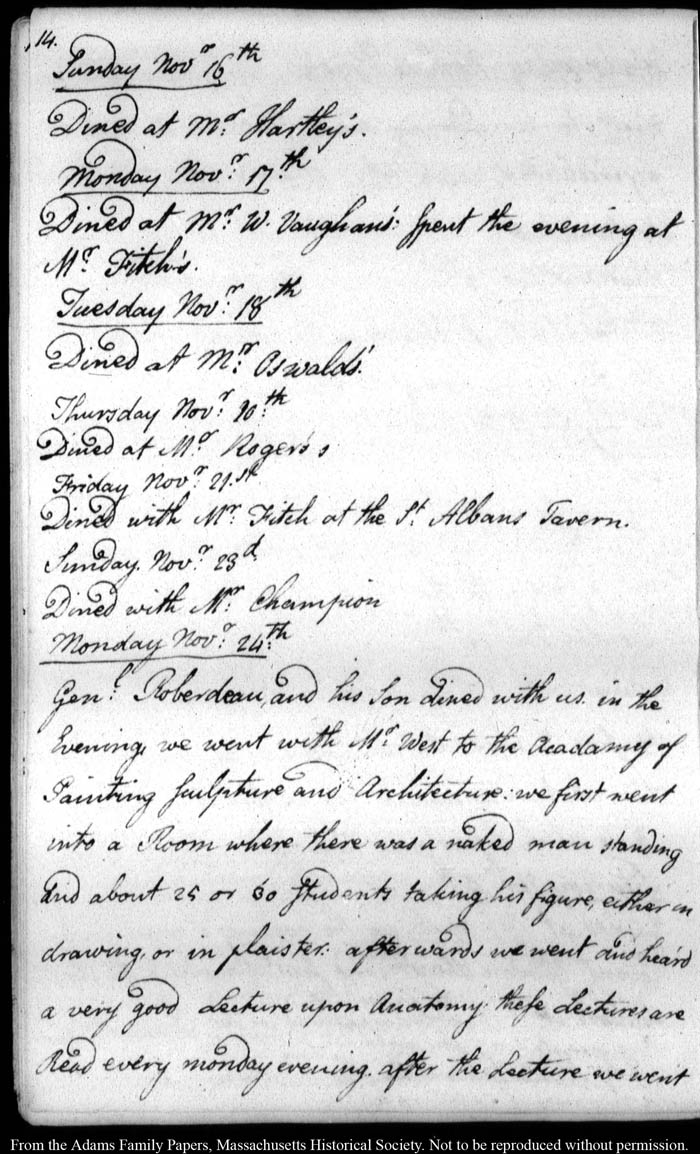 14.
Sunday Novr. 16th
Dined at Mr. Hartley's.
Monday Novr. 17th
Dined at Mr. W. Vaughan's: Spent the evening at
Mr. Fitch's.
Tuesday Novr. 18th
Dined at Mr. Oswald's.
Thursday Novr. 20th
Dined at Mr. Rogers's
Friday Novr. 21st
Dined with Mr. Fitch at the St. Albans Tavern.
Sunday. Novr. 23d.
Dined with Mr. Champion
Monday Novr. 24th
Genl. Roberdeau, and his Son dined with us. in the
Evening, we went with Mr. West to the Acadamy of
Painting Sculpture and Architecture: we first went
into a Room where there was a naked man standing
and about 25 or 30 Students taking his figure, either in
drawing, or in plaister. afterwards we went and heard
a very good Lecture upon Anatomy. these Lectures are
Read every monday evening. after the Lecture we went
From the Adams Family Papers, Massachusetts Historical Society. Not to be reproduced without permission.